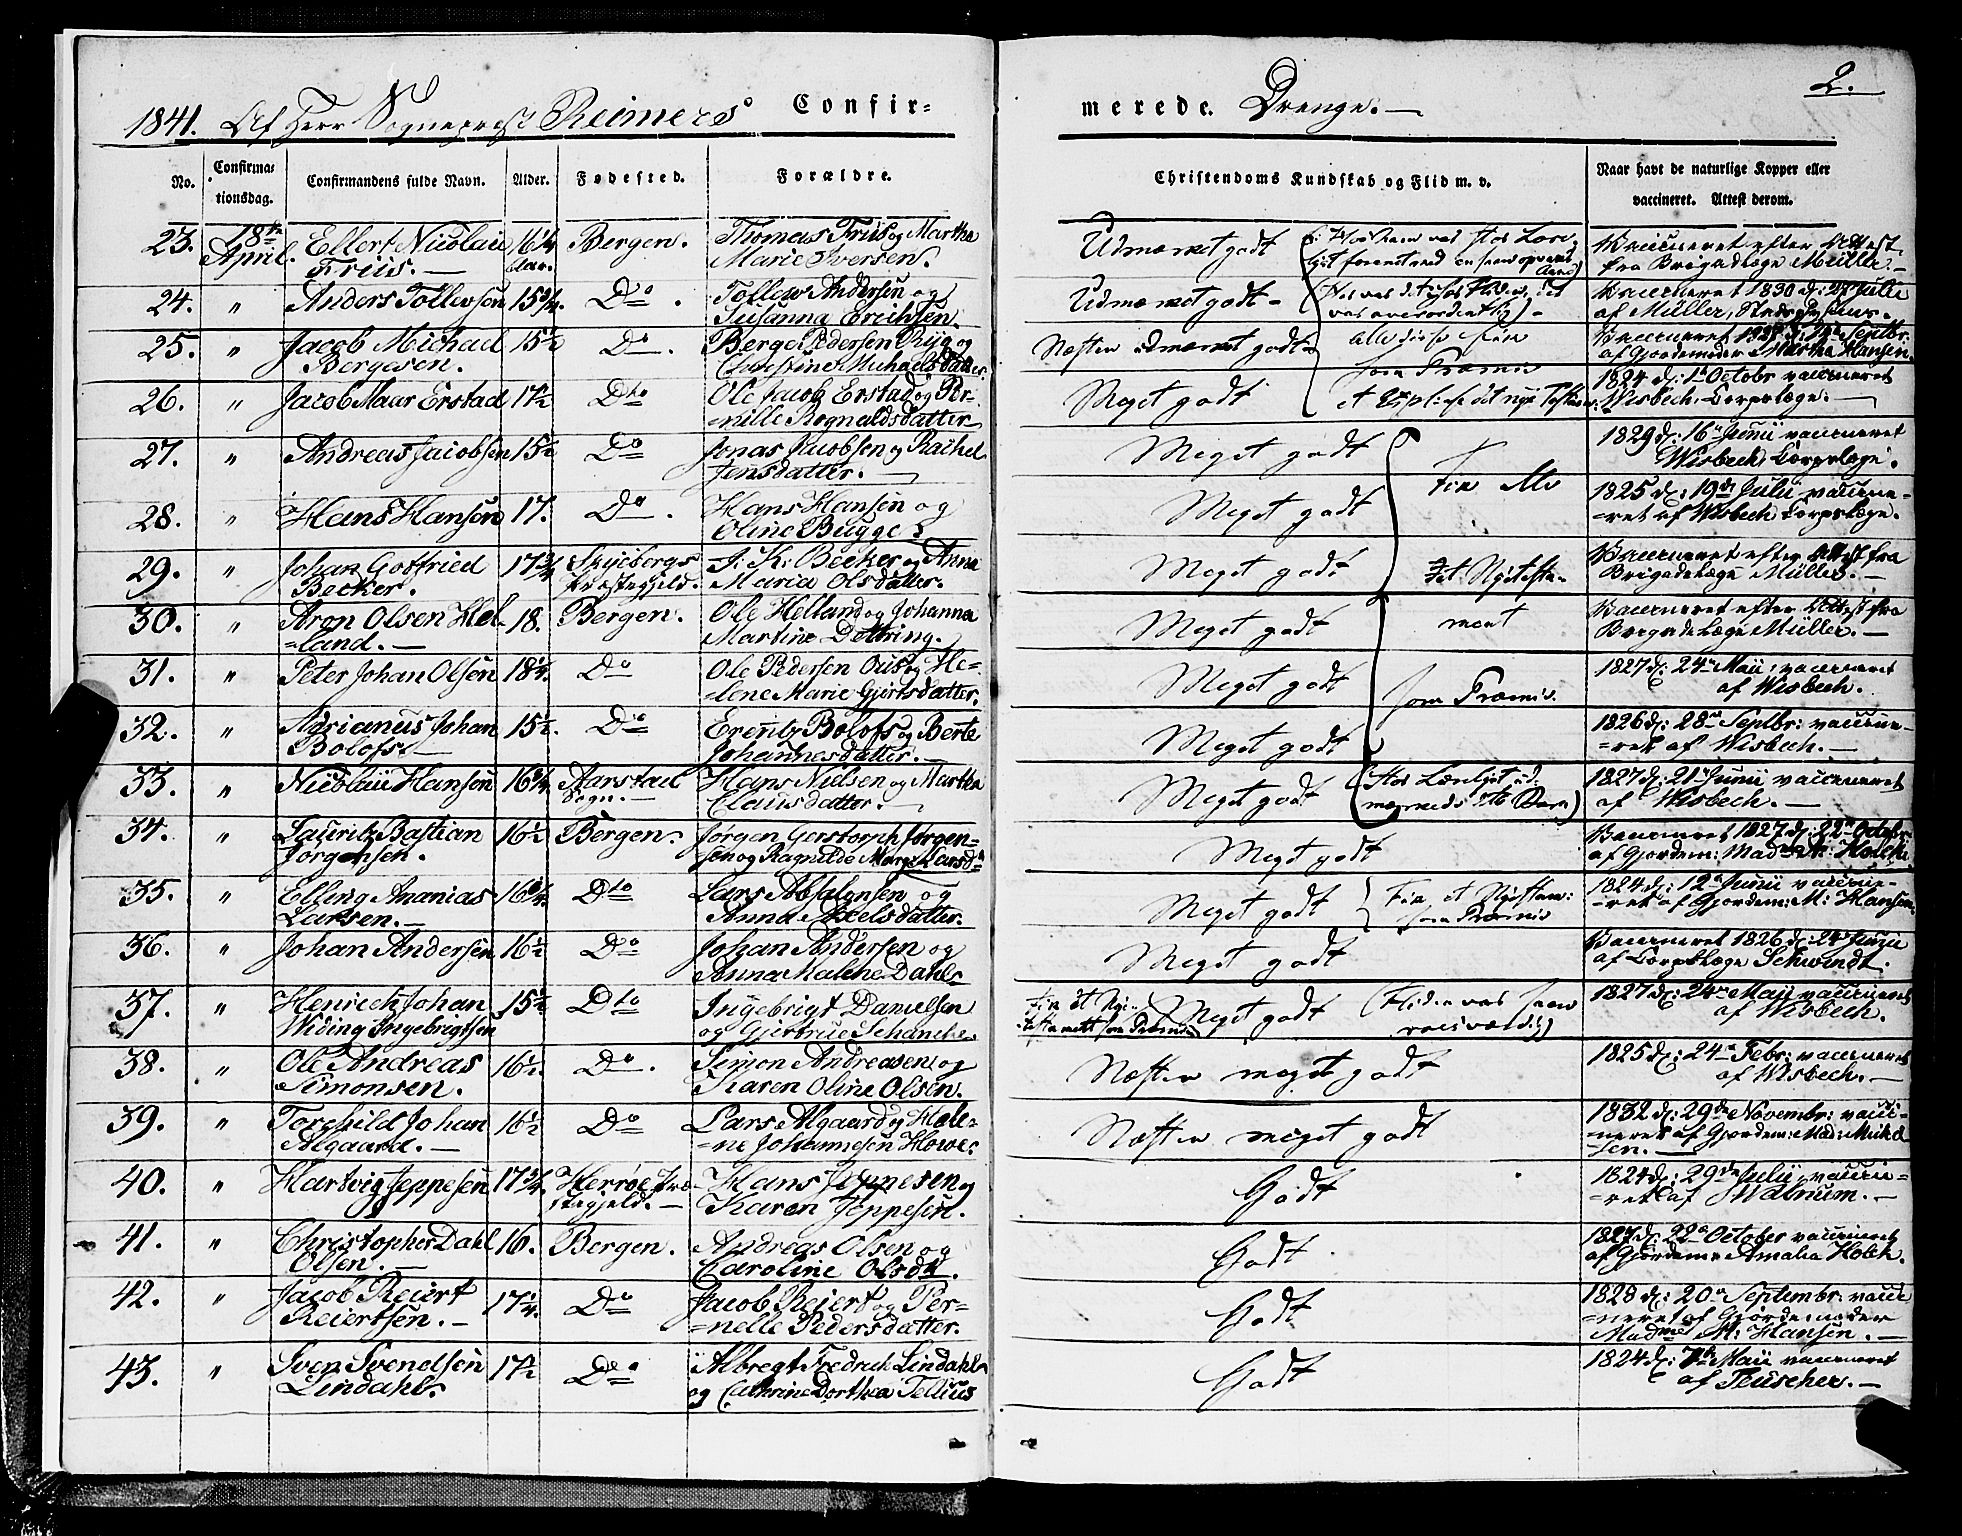 1841. Af Herr Sognepræst Reimers Confir-
merede Drenge. —
2.
No.
Confirma-
tionsdag.
Confirmandens fulde Navn.
Alder.
Fødested.
Forældre.
Christendoms Kundskab og Flid m. v.
Naar havt de naturlige Kopper eller
vaccineret. Attest derom.
23. 18de April. Ellert Nicolai 16 1/4 Bergen. Thomas Friis og Martha
Friis. — Aar. Marie Iversen.
Udmærket godt
Vaccineret efter Attest
fra Brigadelæge Müller. —
24. " Anders Tollevsen 15 3/4 Do. Tollev Andersen og
Susanna Erichsen.
Udmærket godt —
Vaccineret 1830 d: 28 Julii
af Müller,
25. " Jacob Michael 15 1/2 Do. Berge Pedersen Ryg og
Bergesen. Christine Michaelsdatter.
Næsten udmærket godt
alle disse fire
af Gjordemoder Martha Hansen.
26. " Jacob Maar Erstad 17 1/2 Dto Ole Jacob Erstad og Per-
=nille Rognaldsdatter
Meget godt
som Præmie
1824 d: 1te Octobr vaccineret
Wisbech, Corpslæge. —
27. " Andreas Jacobsen 15 1/2 Do Jonas Jacobsen og Rachel
Jensdatter. —
Meget godt
1829 d: 16de Junii vaccineret
Wisbech, Corpslæge.
28. " Hans Hansen 17. Do. Hans Hansen og
Oline Bugge.
Meget godt
1825 d: 19de Julii vaccine-
=ret af Wisbech, Corpslæge.
29. " Johan Gotfried 17 3/4 Skjebergs J. K. Becker og Anna
Becker. Prestegjeld. Maria Olsdatter.
Meget godt
det Nyetesta-
Vaccineret efter Attest fra
Brigadelæge Müller. —
30. " Aron Olsen Hel- 18. Bergen. Ole Helland og Johanna
=land. — Martine Dethring.
Meget godt
ment
Vaccineret efter Attest fra
Brigadelæge Müller. —
31. " Peter Johan Olsen 18 1/4. Do Ole Pedersen Ous og He-
=lene Marie Gjertsdatter.
Meget godt
som Præmie
1827 d: 24de Maii vaccineret
af Wisbech.
32. " Adrianus Johan 15 1/2. Do Erentz Bolofs og Berte
Bolofs. — Johannesdatter. —
Meget godt
1826 d: 28de Septbr: vaccine-
=ret af Wisbech. —
33. " Nicolaii Hansen 16 3/4 Aarstad Hans Nielsen og Martha
Sogn. — Clausdatter. —
Meget godt
1827 d: 21de Junii vaccineret
af Wisbech. —
34. " Lauritz Bastian 16 1/2 Bergen. Jørgen Gerstorph Jørgen-
Jørgensen. sen og Ragnilde Marg: Larsd:
Meget godt
Vaccineret 1827 d: 22de Octobr
af Gjordem: Madme A: Holck.
35. " Elling Ananias 16 3/4 Dto Lars Absalonsen og
Larsen. — Anna Axelsdatter.
Meget godt
som Præmie
1824 d: 12te Junii vaccine-
=ret af Gjordem: M: Hansen.
36. " Johan Andersen 16 1/2 Do Johan Andersen og
Anna Malene Dahl.
Meget godt
Vaccineret 1826 d: 24de Junii
af Corpslæge Schwindt.
37. " Henrich Johan 15 1/2 Dto Ingebrigt Danielsen
Widing Ingebrigtsen og Gjertrue Schanche.
Meget godt
1827 d: 24de Maii vaccineret
af Wisbech.
38. " Ole Andreas 16 1/2. Do. Simon Andreasen og
Simonsen. Karen Oline Olsen.
Næsten meget godt
1825 d: 24de Febr: vaccineret
af Wisbech. —
39. " Torchild Johan 16 1/2 Do Lars Algaard og Hele-
Algaard. — =ne Johannesen Howe.
Næsten meget godt
1832 d: 29de Novembr: vacci-
=neret af Gjordem: Mad: Mickel-
sen. —
40. " Hartvig Jeppesen 17 3/4. Herrøe Præ- Hans Jeppesen og
stegjeld. — Karen Jeppesen.
Godt
1824 d: 29de Julii vaccine-
=ret af J Walnum. —
41. " Christopher Dahl 16. Bergen. Andreas Olsen og
Olsen. — Caroline Olsdtr.
Godt
1827 d: 22de October vaccineret
af Gjordem: Amalia Holck.
42. " Jacob Reiert 17 1/4. Do Jacob Reiert og Per-
Reiertsen. — =nelle Pedersdatter.
Godt
1828 d: 20de Septembr: vacci-
=neret af Gjordemoder
Madme M: Hansen. —
43. " Sven Svendsen 17 1/2 Do Albregt Fredrick Lindahl
Lindahl. og Cathrine Dorthea Tellius
Godt
1824 d: 7de Maii vaccineret
af Teuscher. —